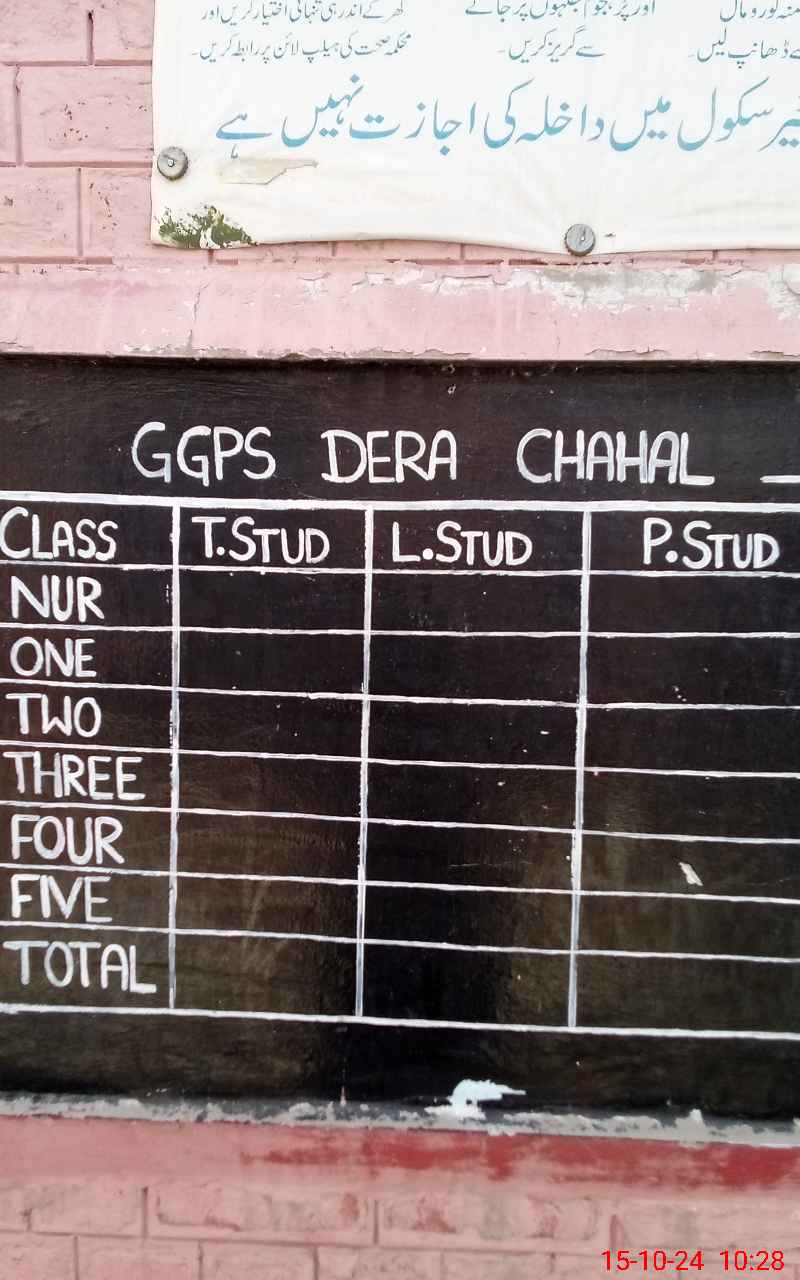 گھر کے اندر ہی تنہائی اختیار کریں اور
محکمہ صحت کی ہیلپ لائن پر رابطہ کریں۔
اور پُر ہجوم جگہوں پر جانے
سے گریز کریں۔
منہ کو رومال
سے ڈھانپ لیں۔
سکول میں داخلہ کی اجازت نہیں ہے
GGPS DERA CHAHAL
CLASS T.STUD L.STUD P.STUD
NUR
ONE
TWO
THREE
FOUR
FIVE
TOTAL
15-10-24 10:28